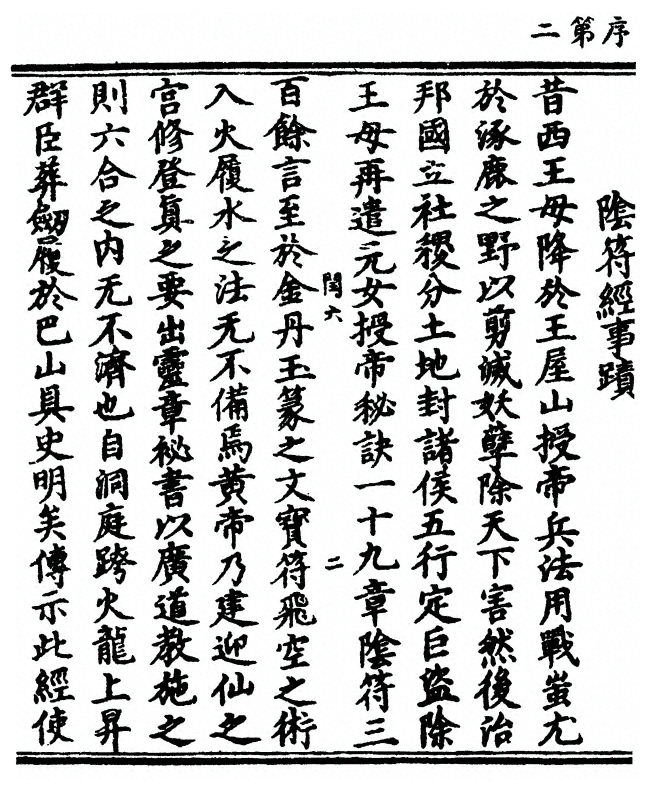 序第二
陰符經事蹟
昔西王母降於王屋山授帝兵法用戰蚩尤
於涿鹿之野以剪滅妖孽除天下害然後治
邦國立社稷分土地封諸侯五行定巨盜除
王母再遣元女授帝秘訣一十九章陰符三
閏六
二
百餘言至於金丹玉篆之文寶符飛空之術
入火履水之法无不備焉黃帝乃建迎仙之
宮修登真之要出靈章祕書以廣道教施之
則六合之内无不濟也自洞庭跨火龍上昇
群臣葬劔履於巴山具史明矣傳示此經使